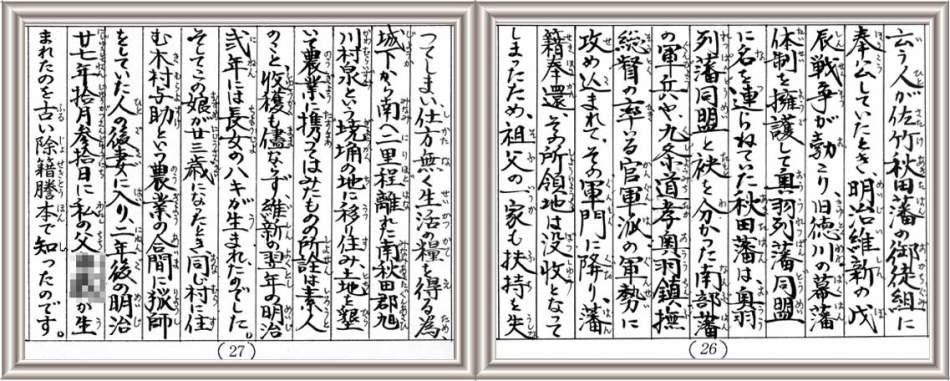 云う人が佐竹秋田藩の御徒組に
奉公していたとき明治維新の戊
辰戦争が勃こり、旧徳川の幕藩
体制を擁護して奥羽列藩同盟
に名を連らねていた秋田藩は、奥羽
列藩同盟と袂を分かつた南部藩
の軍兵や、九条道孝奥羽鎮撫
総督の率いる官軍派の軍勢に
攻め込まれて、その軍門に降り、藩
籍奉還、その所領地は没收となって
しまったため、祖父の一家も扶持を失
(26)
つてしまい仕方無く生活の糧を得る為、
城下から南へ二里程離れた南秋田郡旭
川村泉という埆の地に移り住み土地を墾
いて農業に携つてはみたものの所詮は素人
のこと、收穫も儘ならず維新の翌年の明治
弐年には長女のハキが生まれたのでした。
そしてこの娘が廿三歳になったとき同じ村に住
む木村与助という農業の合間に猟師
をしていた人の後妻に入り、二年後の明治
廿七年拾月参拾日に私の父が生
まれたのを古い除籍謄本で知ったのです。
(27)